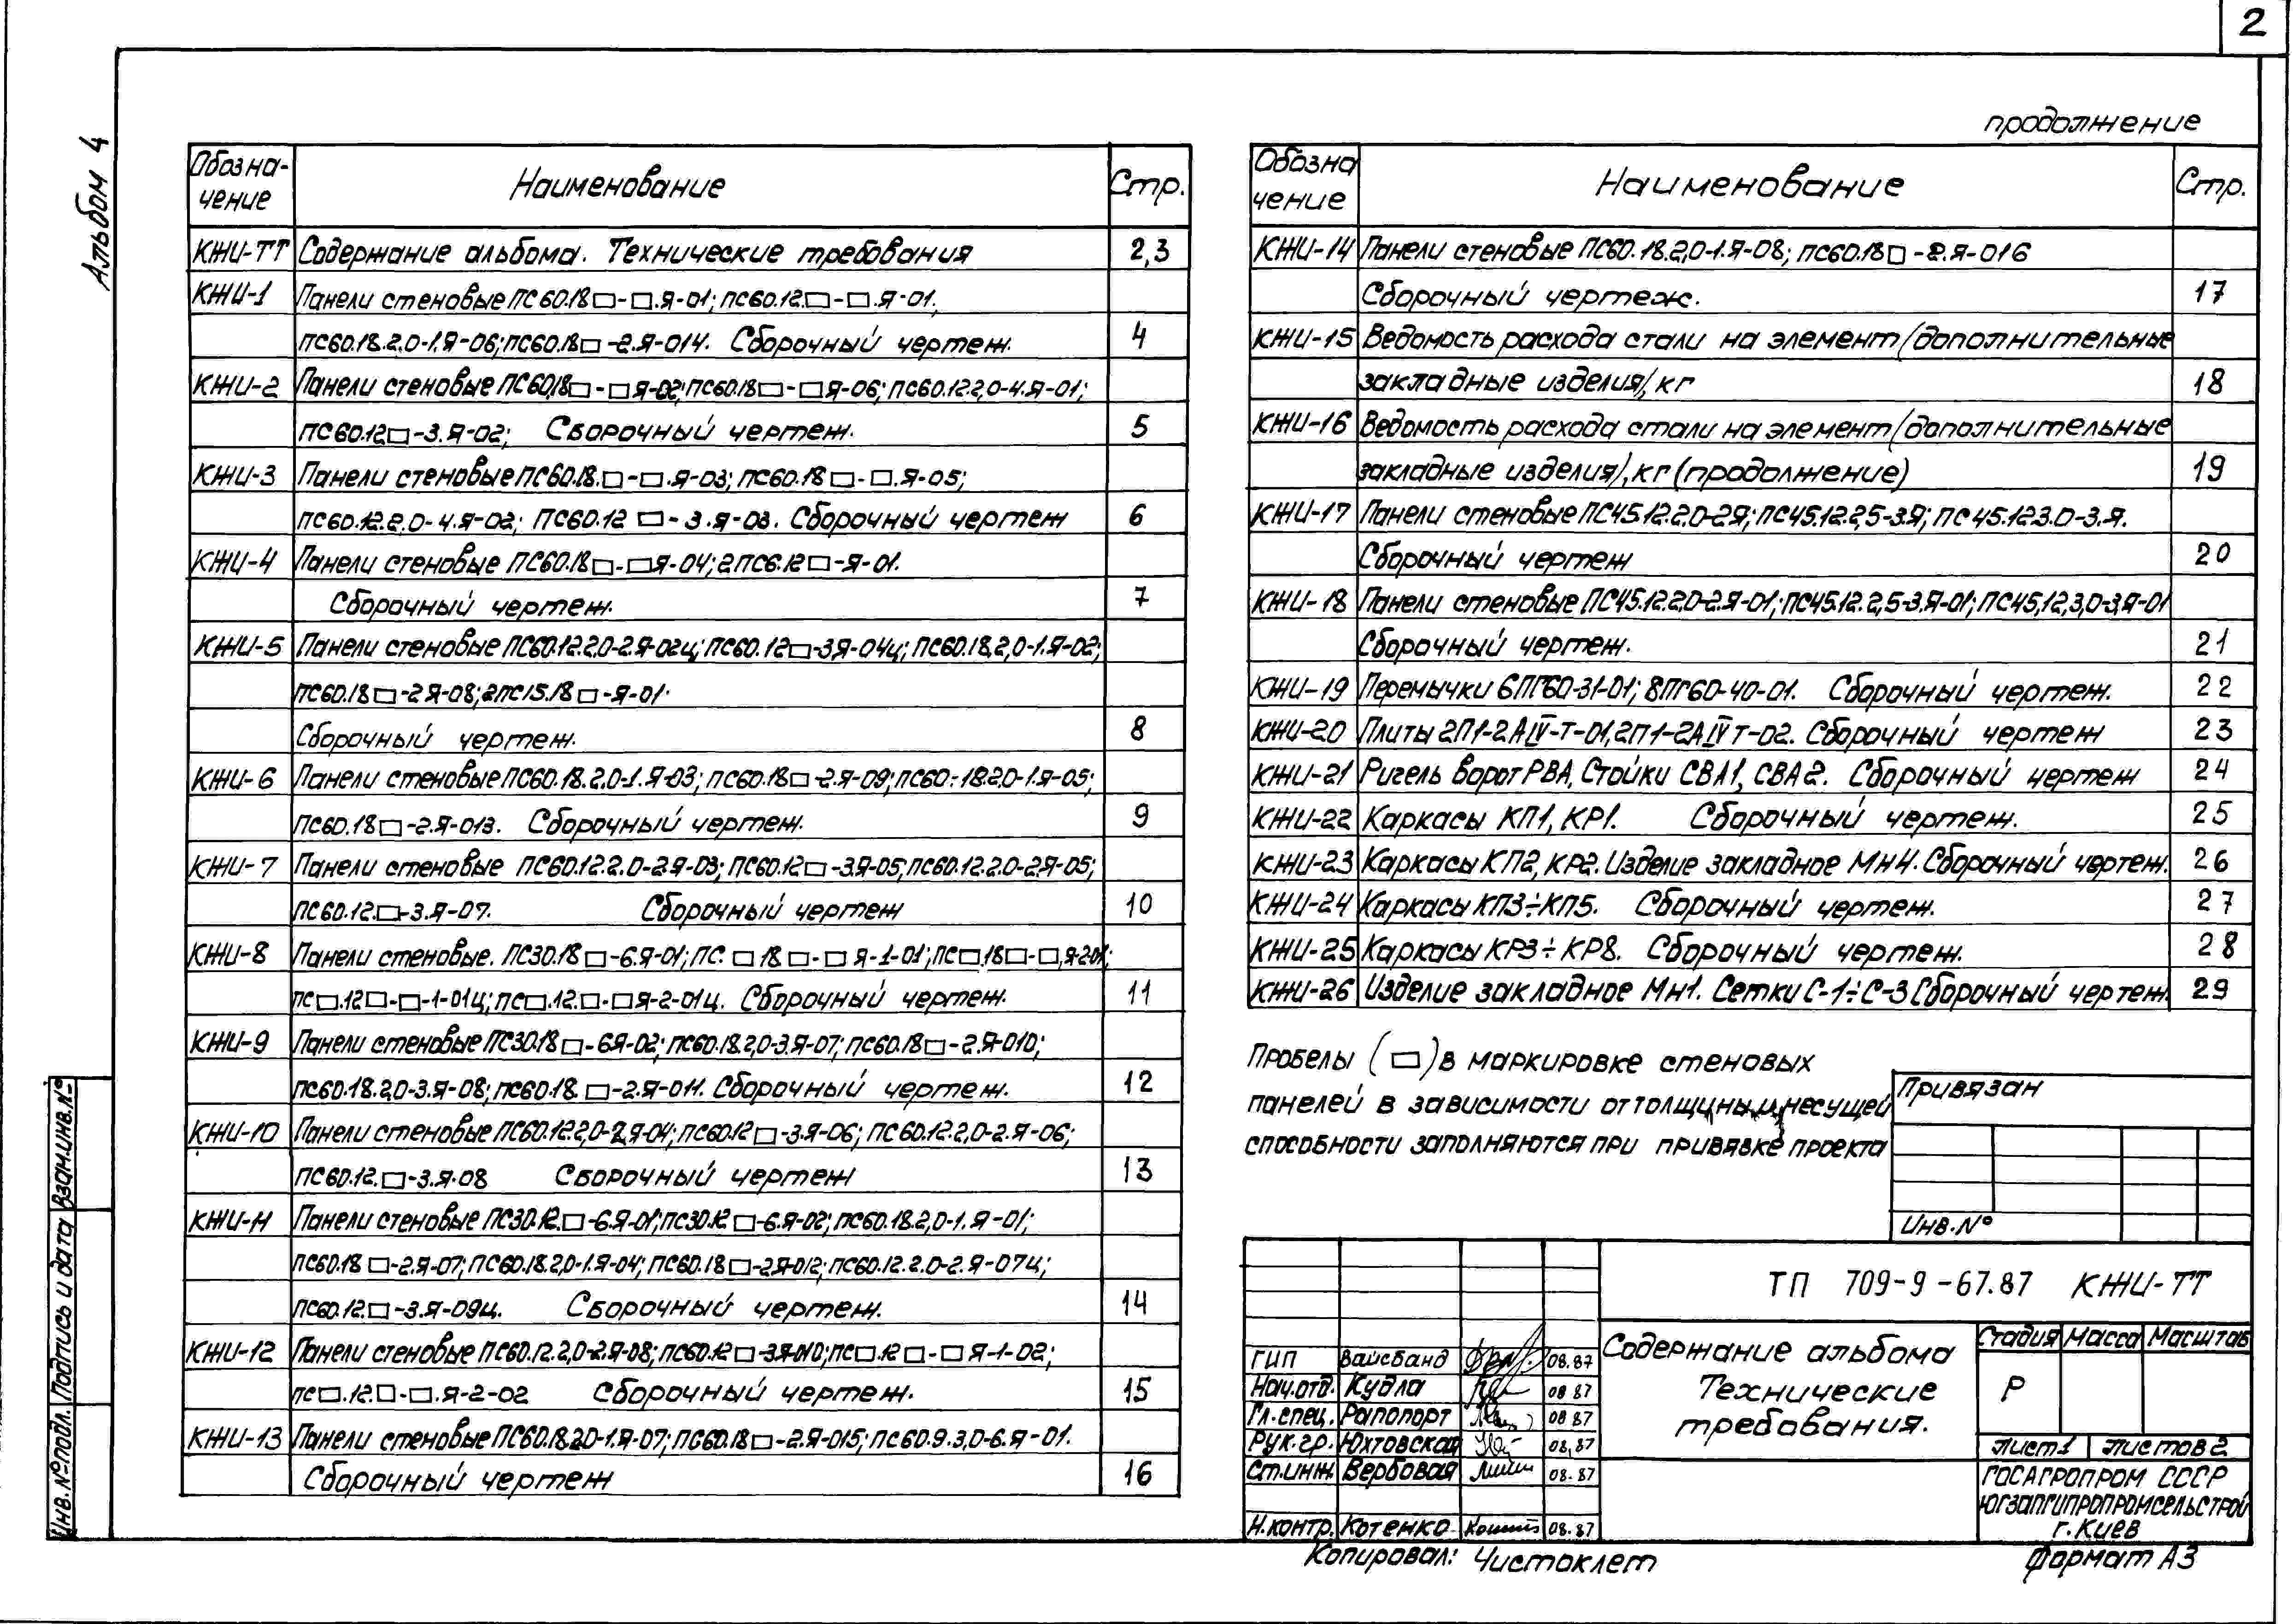 2
Альбом 4
Обозна-
чение
Наименование
Стр.
КЖИ-ТТ Содержание альбома. Технические требования 2,3
КЖИ-1 Панели стеновые ПС60.18□-□.Я-01; ПС60.12.□-□.Я-01.
ПС60.18.2.0-1.Я-06; ПС60.18□-2.Я-014. Сборочный чертеж. 4
КЖИ-2 Панели стеновые ПС60,18□-□Я-02; ПС60.18□-□Я-06; ПС60.12.2,0-4.Я-01;
ПС60.12□-3.Я-02; Сборочный чертеж. 5
КЖИ-3 Панели стеновые ПС60.18.□-□.Я-03; ПС60.18□-□.Я-05;
ПС60.12.2.0-4.Я-02; ПС60.12□-3.Я-03. Сборочный чертеж 6
КЖИ-4 Панели стеновые ПС60.18□-□Я-04; 2ПС6.12□-Я-01.
Сборочный чертеж. 7
КЖИ-5 Панели стеновые ПС60.12.2.0-2.Я-02ц; ПС60.12□-3Я-04ц; ПС60.18,2,0-1.Я-02;
ПС60.18□-2Я-08; 2ПС15.18□-Я-01.
Сборочный чертеж. 8
КЖИ-6 Панели стеновые ПС60.18.2.0-1.Я-03; ПС60.18□-2.Я-09; ПС60.-18.2.0-1.Я-05;
ПС60.18□-2.Я-013. Сборочный чертеж. 9
КЖИ-7 Панели стеновые ПС60.12.2.0-2.Я-03; ПС60.12□-3.Я-05; ПС60.12.2.0-2.Я-05;
ПС60.12.□-3.Я-07. Сборочный чертеж 10
КЖИ-8 Панели стеновые. ПС30.18□-6.Я-01; ПС.□18□-□Я-1-01; ПС□.18□-□.Я-2-01;
ПС□.12□-□-1-01ц; ПС□.12.□-□Я-2-01ц. Сборочный чертеж. 11
КЖИ-9 Панели стеновые ПС30.18□-6Я-02; ПС60.18.2,0-3.Я-07; ПС60.18□-2.Я-010;
ПС60.18.2,0-3.Я-08; ПС60.18.□-2.Я-011. Сборочный чертеж. 12
КЖИ-10 Панели стеновые ПС60.12.2,0-2.Я-04; ПС60.12□-3.Я-06; ПС60.12.2,0-2.Я-06;
ПС60.12.□-3.Я-08 Сборочный чертеж 13
КЖИ-11 Панели стеновые ПС30.12.□-6.Я-01; ПС30.12□-6.Я-02; ПС60.18.2,0-1.Я-01;
ПС60.18□-2.Я-07; ПС60.18.2,0-1.Я-04; ПС60.18□-2.Я-012; ПС60.12.2.0-2.Я-07ц;
ПС60.12□-3.Я-09ц. Сборочный чертеж. 14
КЖИ-12 Панели стеновые ПС60.12.2,0-2.Я-08; ПС60.12□-3.Я-010; ПС□.12□-□Я-1-02;
ПС□.12□-□.Я-2-02 Сборочный чертеж. 15
КЖИ-13 Панели стеновые ПС60.18.2.0-1.Я-07; ПС60.18□-2.Я-015; ПС60.9.3,0-6.Я-01.
Сборочный чертеж 16
продолжение
Обозна
чение
Наименование
Стр.
КЖИ-14 Панели стеновые ПС60.18.2,0-1.Я-08; ПС60.18□-2.Я-016
Сборочный чертеж. 17
КЖИ-15 Ведомость расхода стали на элемент/дополнительные
закладные изделия/, кг 18
КЖИ-16 Ведомость расхода стали на элемент/дополнительные
закладные изделия/, кг (продолжение) 19
КЖИ-17 Панели стеновые ПС45.12.2.0-2Я; ПС45.12.2,5-3.Я; ПС45.12.3.0-3.Я.
Сборочный чертеж 20
КЖИ-18 Панели стеновые ПС45.12.2,0-2.Я-01; ПС45.12.2,5-3.Я-01; ПС45,12,3,0-3.Я-01
Сборочный чертеж. 21
КЖИ-19 Перемычки 6ПГ60-31-01; 8ПГ60-40-01. Сборочный чертеж. 22
КЖИ-20 Плиты 2П1-2АIV-Т-01, 2П1-2АIVТ-02. Сборочный чертеж 23
КЖИ-21 Ригель ворот РВА, Стойки СВА1, СВА2. Сборочный чертеж 24
КЖИ-22 Каркасы КП1, КР1. Сборочный чертеж. 25
КЖИ-23 Каркасы КП2, КР2. Изделие закладное МН4. Сборочный чертеж. 26
КЖИ-24 Каркасы КП3÷КП5. Сборочный чертеж. 27
КЖИ-25 Каркасы КР3÷КР8. Сборочный чертеж. 28
КЖИ-26 Изделие закладное Мн1. Сетки С-1÷С-3 Сборочный чертеж. 29
Пробелы (□) в маркировке стеновых
панелей в зависимости от толщины и несущей
способности заполняются при привязке проекта
Привязан
Инв.№
ТП 709-9-67.87 КЖИ-ТТ
ГИП Вайсбанд 08.87
Нач.отд. Кудла 08 87
Гл.спец. Рапопорт 08 87
Рук.гр. Юхтовская 08,87
Ст.инж Вербовая 08.87
Н.контр. Котенко 08.87
Содержание альбома
Технические
требования.
Стадия Масса Масштаб
Р
Лист 1 Листов 2
ГОСАГРОПРОМ СССР
ЮГЗАПГИПРОПРОМСЕЛЬСТРОЙ
г. Киев
Копировал: Чистоклет
Формат А3
Инв.№подл. Подпись и дата Взам.инв.№